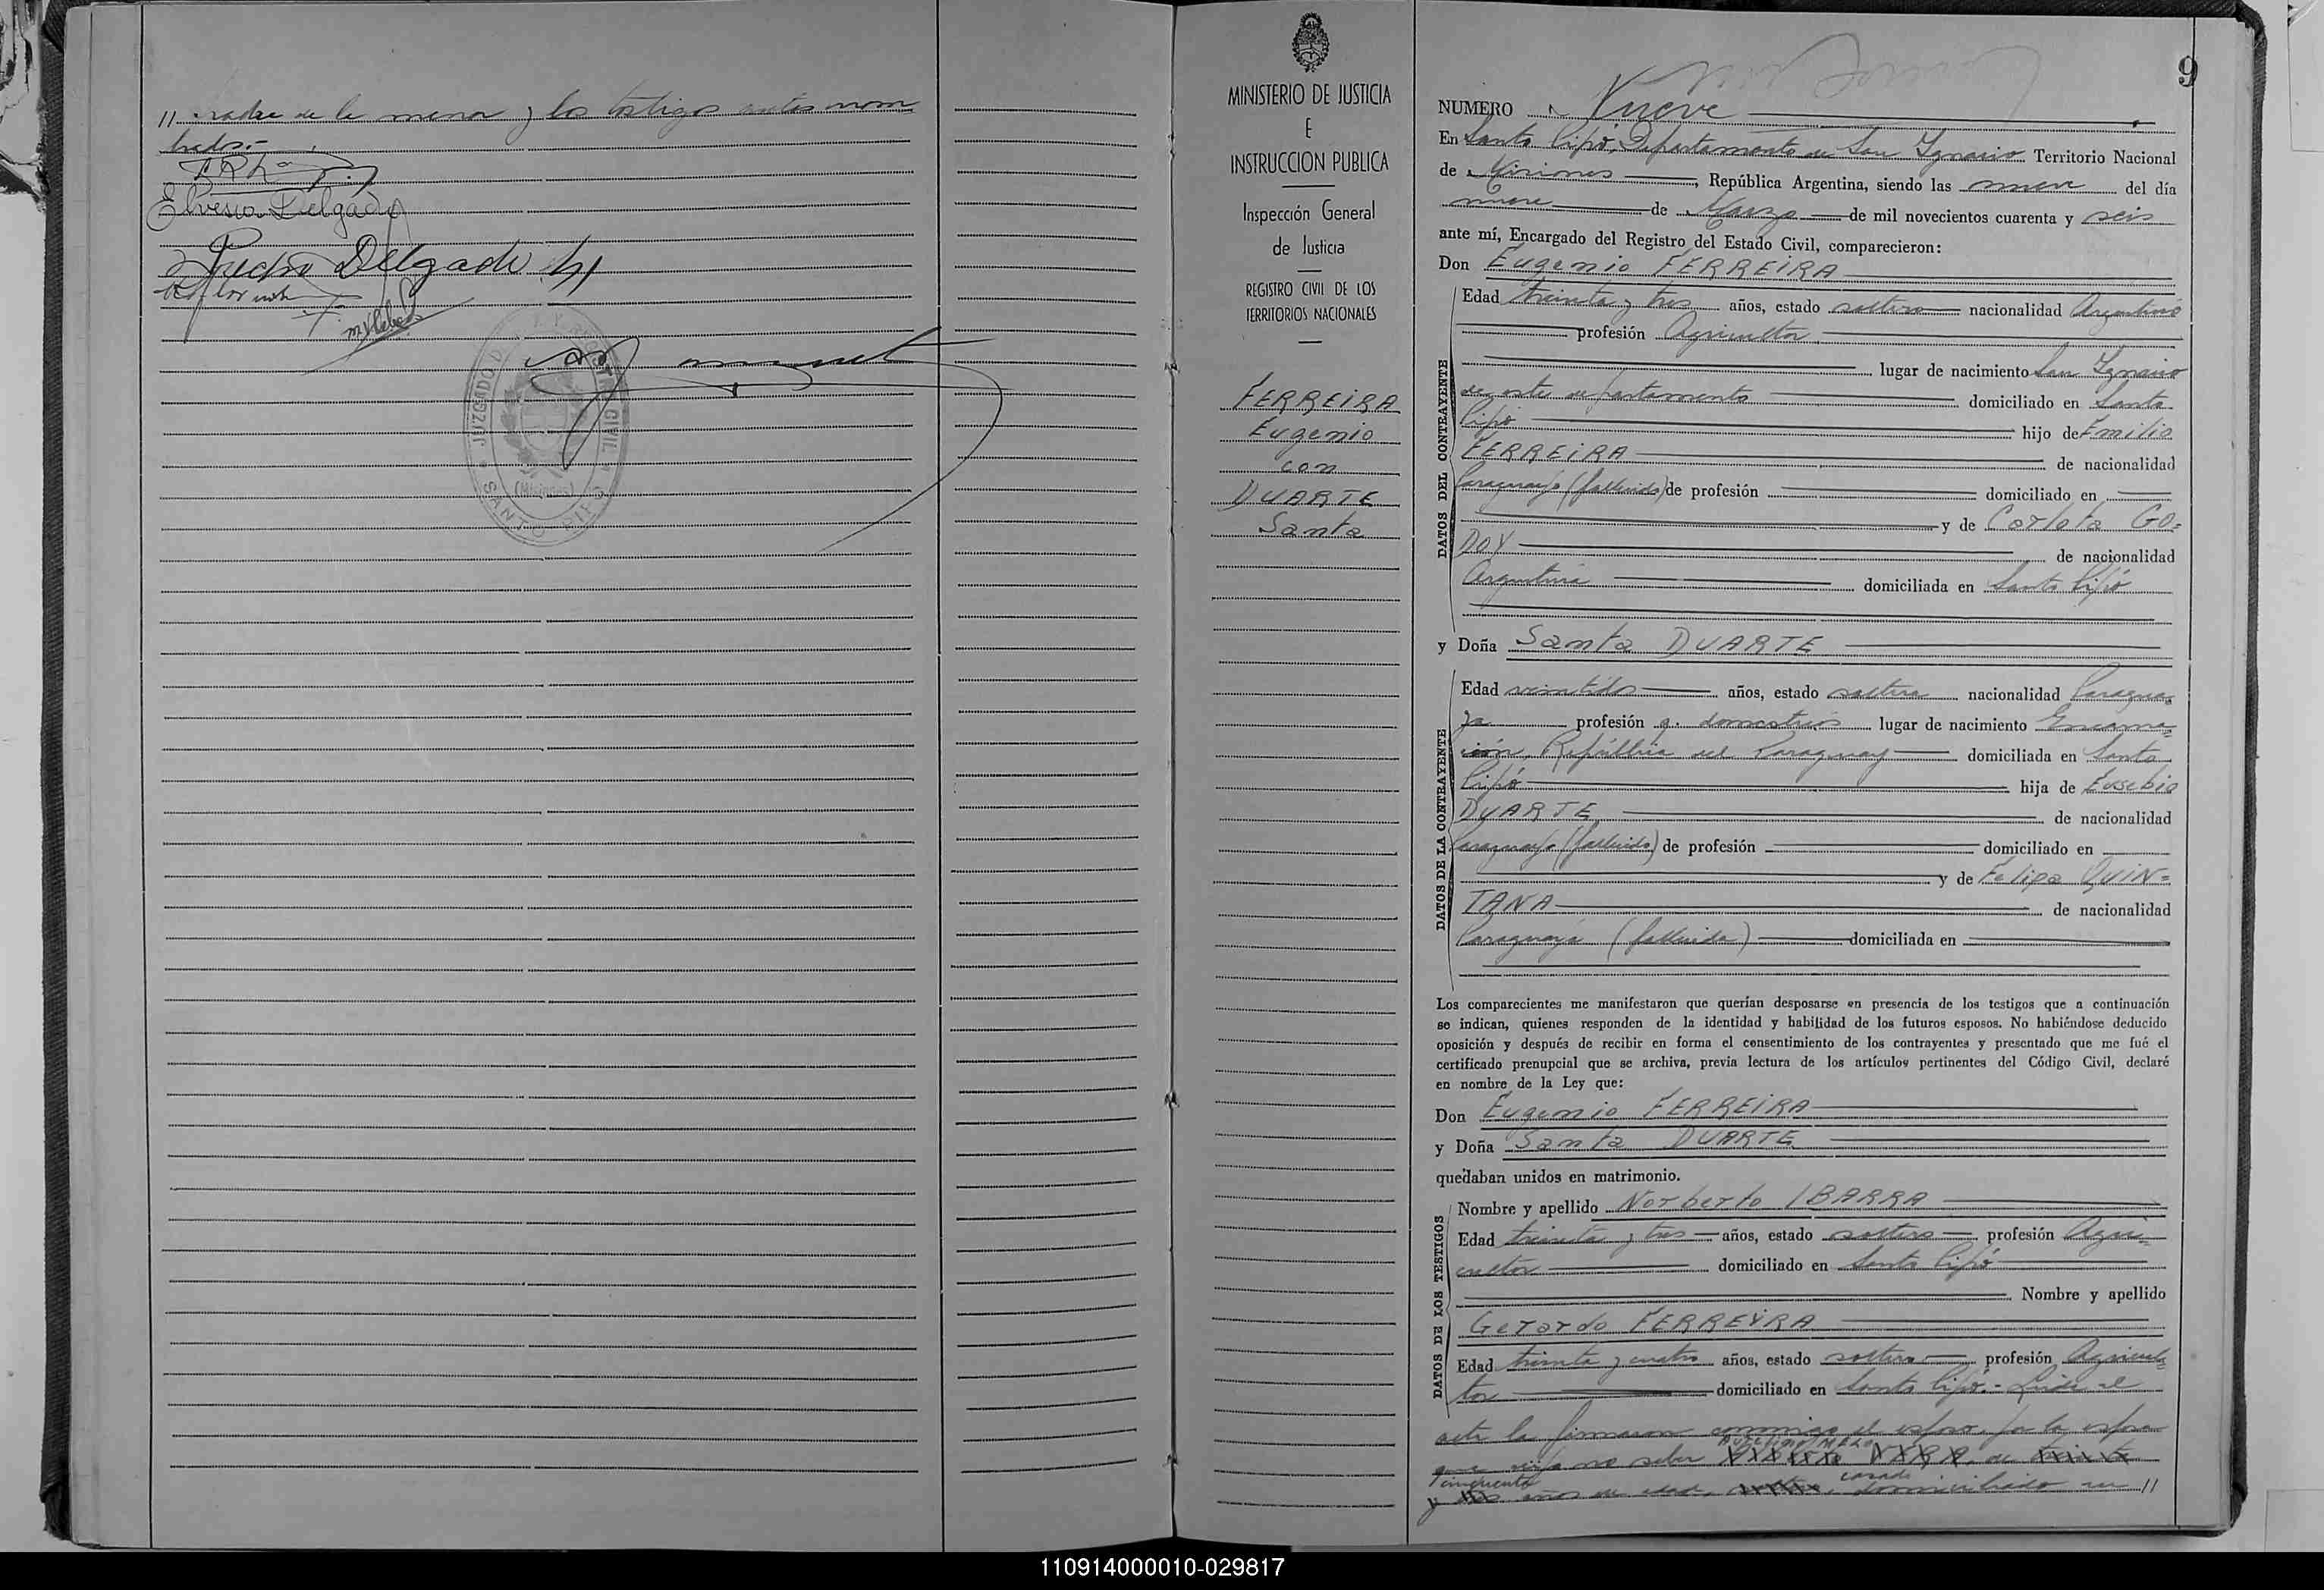 // madre de la menor y los testigos antes nom
brados.-
Elvesia Delgado
Pedro Delgado h
JUZGADO DE PAZ Y REGISTRO CIVIL
(Misiones)
SANTO PIPÓ
MINISTERIO DE JUSTICIA
E
INSTRUCCION PUBLICA
Inspección General
de Justicia
REGISTRO CIVIL DE LOS
TERRITORIOS NACIONALES
FERREIRA
Eugenio
con
DUARTE
Santa
9
NUMERO Nueve
En Santo Pipó, Departamento de San Ignacio Territorio Nacional
de Misiones, República Argentina, siendo las nueve del día
nueve de Marzo de mil novecientos cuarenta y seis
ante mí, Encargado del Registro del Estado Civil, comparecieron:
Don Eugenio FERREIRA
DATOS DEL CONTRAYENTE
Edad treinta y tres años, estado soltero nacionalidad Argentino
profesión Agricultor
lugar de nacimiento San Ignacio
de este departamento domiciliado en Santo
Pipó hijo de Emilio
FERREIRA de nacionalidad
Paraguayo (fallecido) de profesión domiciliado en
y de Carlota GO=
DOY de nacionalidad
Argentina domiciliada en Santo Pipó
y Doña Santa DUARTE
DATOS DE LA CONTRAYENTE
Edad veintidos años, estado soltera nacionalidad Paragua=
ya profesión q. domesticos lugar de nacimiento Encarna=
ción, República del Paraguay domiciliada en Santo
Pipó hija de Eusebio
DUARTE de nacionalidad
Paraguayo (fallecido) de profesión domiciliado en
y de Felipa QUIN=
TANA de nacionalidad
Paraguaya (fallecida) domiciliada en
Los comparecientes me manifestaron que querían desposarse en presencia de los testigos que a continuación
se indican, quienes responden de la identidad y habilidad de los futuros esposos. No habiéndose deducido
oposición y después de recibir en forma el consentimiento de los contrayentes y presentado que me fué el
certificado prenupcial que se archiva, previa lectura de los artículos pertinentes del Código Civil, declaré
en nombre de la Ley que:
Don Eugenio FERREIRA
y Doña Santa DUARTE
quedaban unidos en matrimonio.
DATOS DE LOS TESTIGOS
Nombre y apellido Norberto IBARRA
Edad treinta y tres años, estado soltero profesión Agri=
cultor domiciliado en Santo Pipó
Nombre y apellido
Gerardo FERREYRA
Edad treinta y cuatro años, estado soltero profesión Agricul=
tor domiciliado en Santo Pipó.- Leida el
acta la firmaron conmigo el esposo, por la esposa
que dijo no saber de
cincuenta casado
y años de edad, domiciliado en //
110914000010-029817